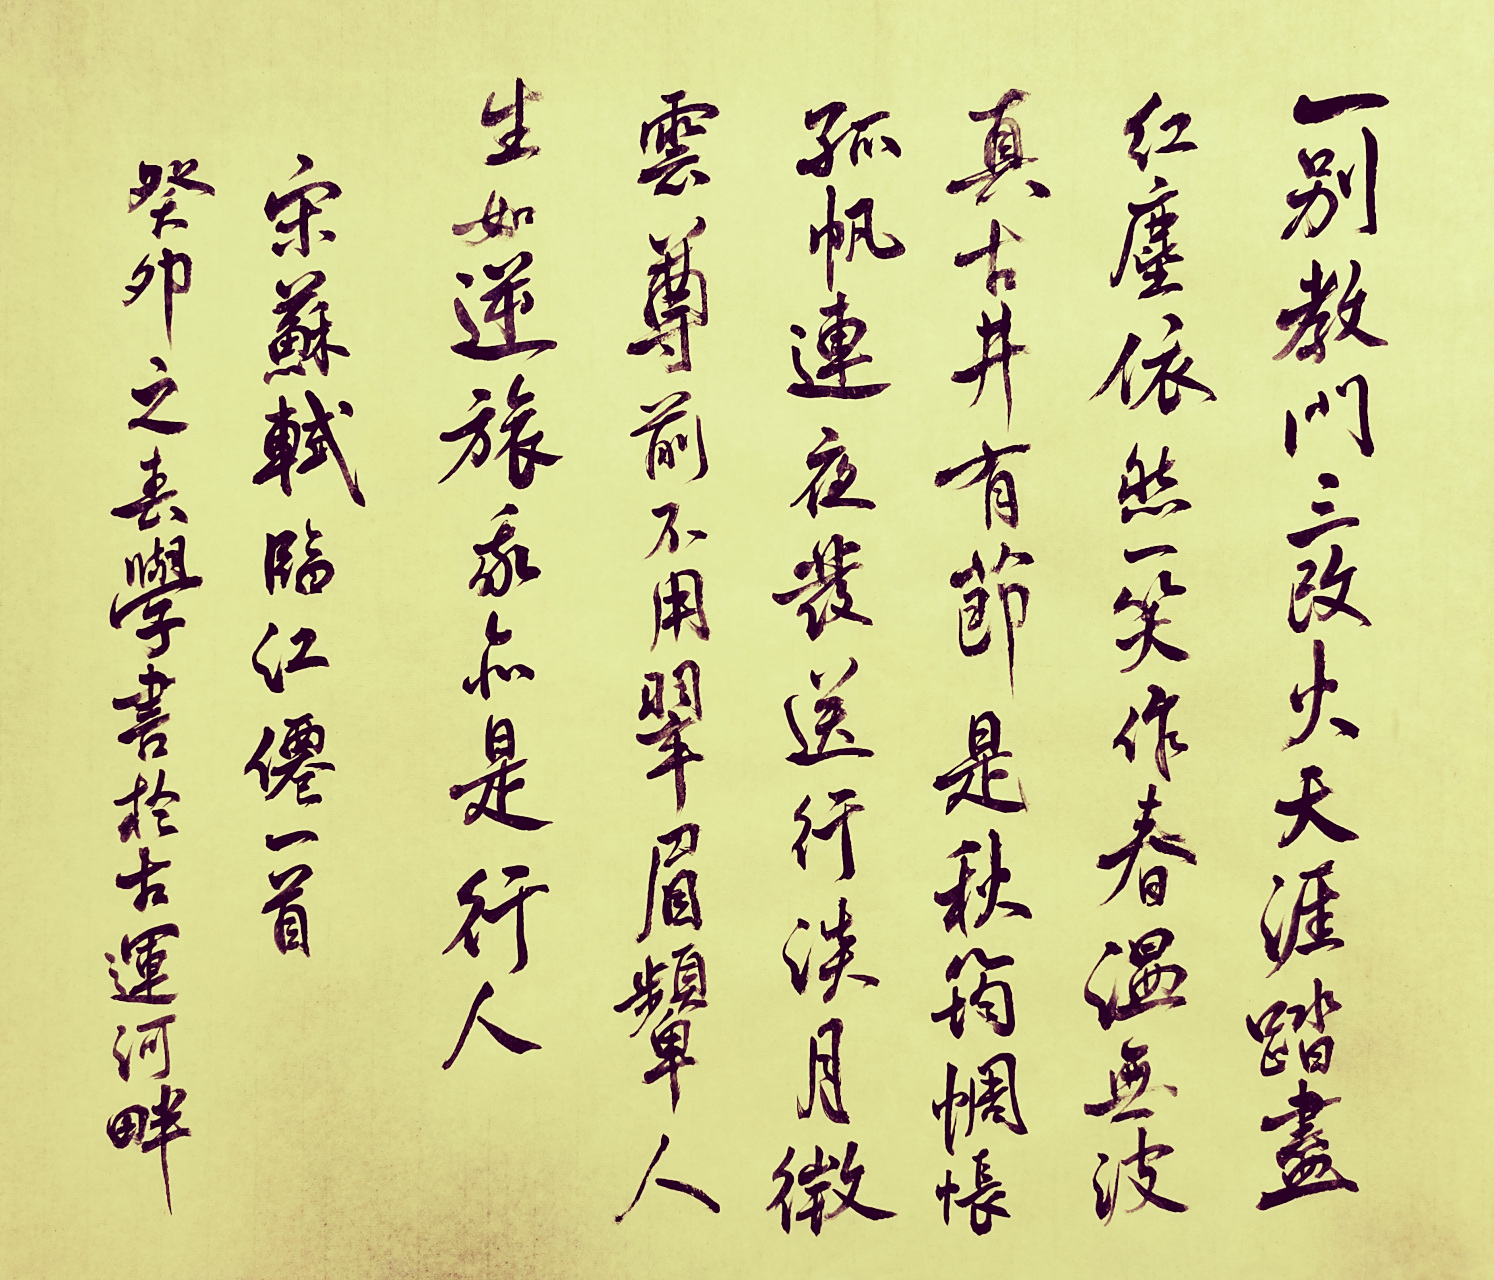 一別教門三改火天涯踏盡
紅塵依然一笑作春溫無波
真古井有節是秋筠惆悵
孤帆連夜發送行淡月微
雲尊前不用翠眉顰人
生如逆旅我亦是行人
宋蘇軾臨江僊一首
癸卯之春學書於古運河畔